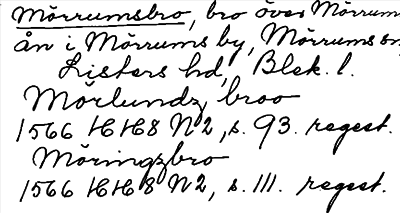 Mörrumsbro, bro över Mörrums
ån i Mörrums by, Mörrums sn,
Listers hd, Blek. l.
Mörlundz broo
1566 HH8 N2, s. 93. regest.
Möringzbro
1566 HH8 N2, s. 111. regest.